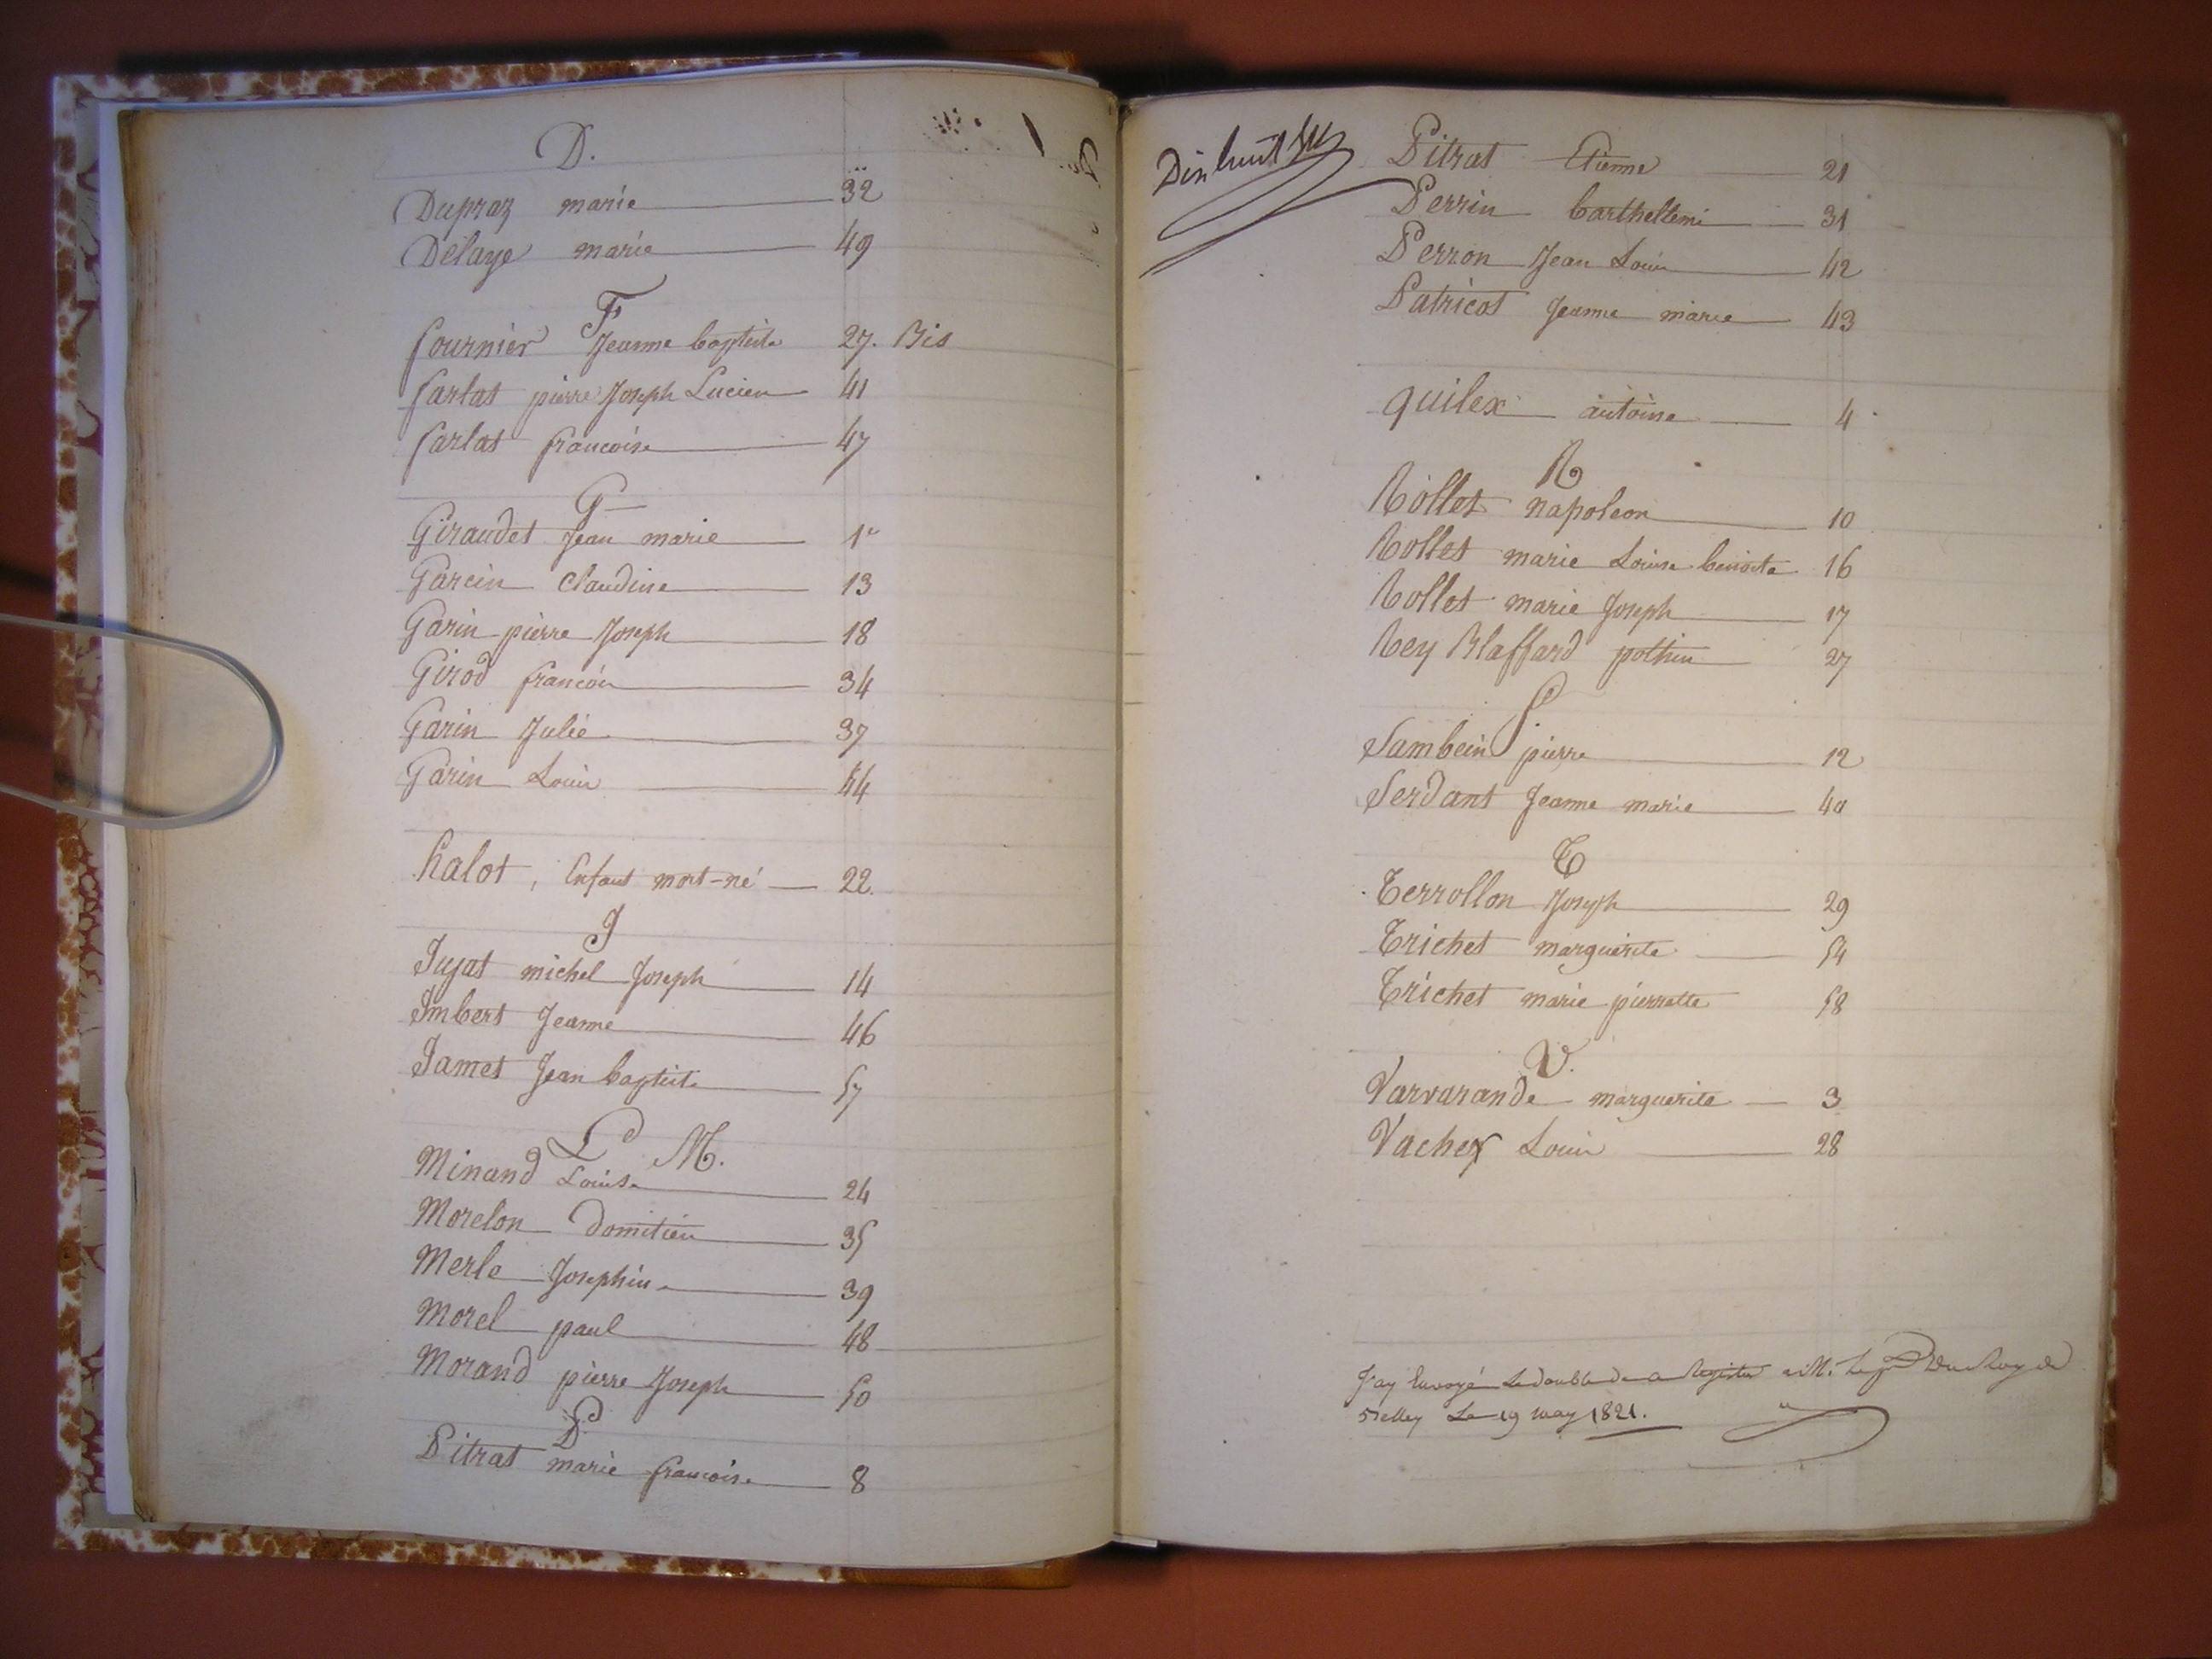 D.
Dupraz marie 32
Delaye marie 49
F
fournier Jeanne baptiste 27. Bis
farlat pierre Joseph Lucien 41
farlat francoise 47
G
Giraudet Jean marie 1er
Garcin Claudine 13
Garin pierre Joseph 18
Girod francois 34
Garin Julie 37
Garin Louis 44
halot, Enfant mort-né 22.
J
Jujat michel Joseph 14
Imbert Jeanne 46
Jamet Jean baptiste 57
L M.
Minand Louise 24
Morelon Domitien 35
Merle Josephin 39
Morel paul 48
Morand pierre Joseph 50
P
Pitrat marie francoise 8
Dixhuit
Pitrat Etienne 21
Perrin barthellemi 31
Perron Jean Louis 42
Patricot Jeanne marie 43
quilex antoine 4
R
Rollet napoleon 10
Rollet marie Louise benoite 16
Rollet marie Joseph 17
Rey Blaffard pothin 27
S.
Sambein pierre 12
Serdant Jeanne marie 40
T
Terrollon Joseph 29
Trichet marguerite 54
Trichet marie pierrette 58
V.
Varvarande marguerite 3
Vachex Louis 28
J'ay Envoyé Le double de ce Registre a M. Le Du Roy de
Belley Le 19 may 1821.